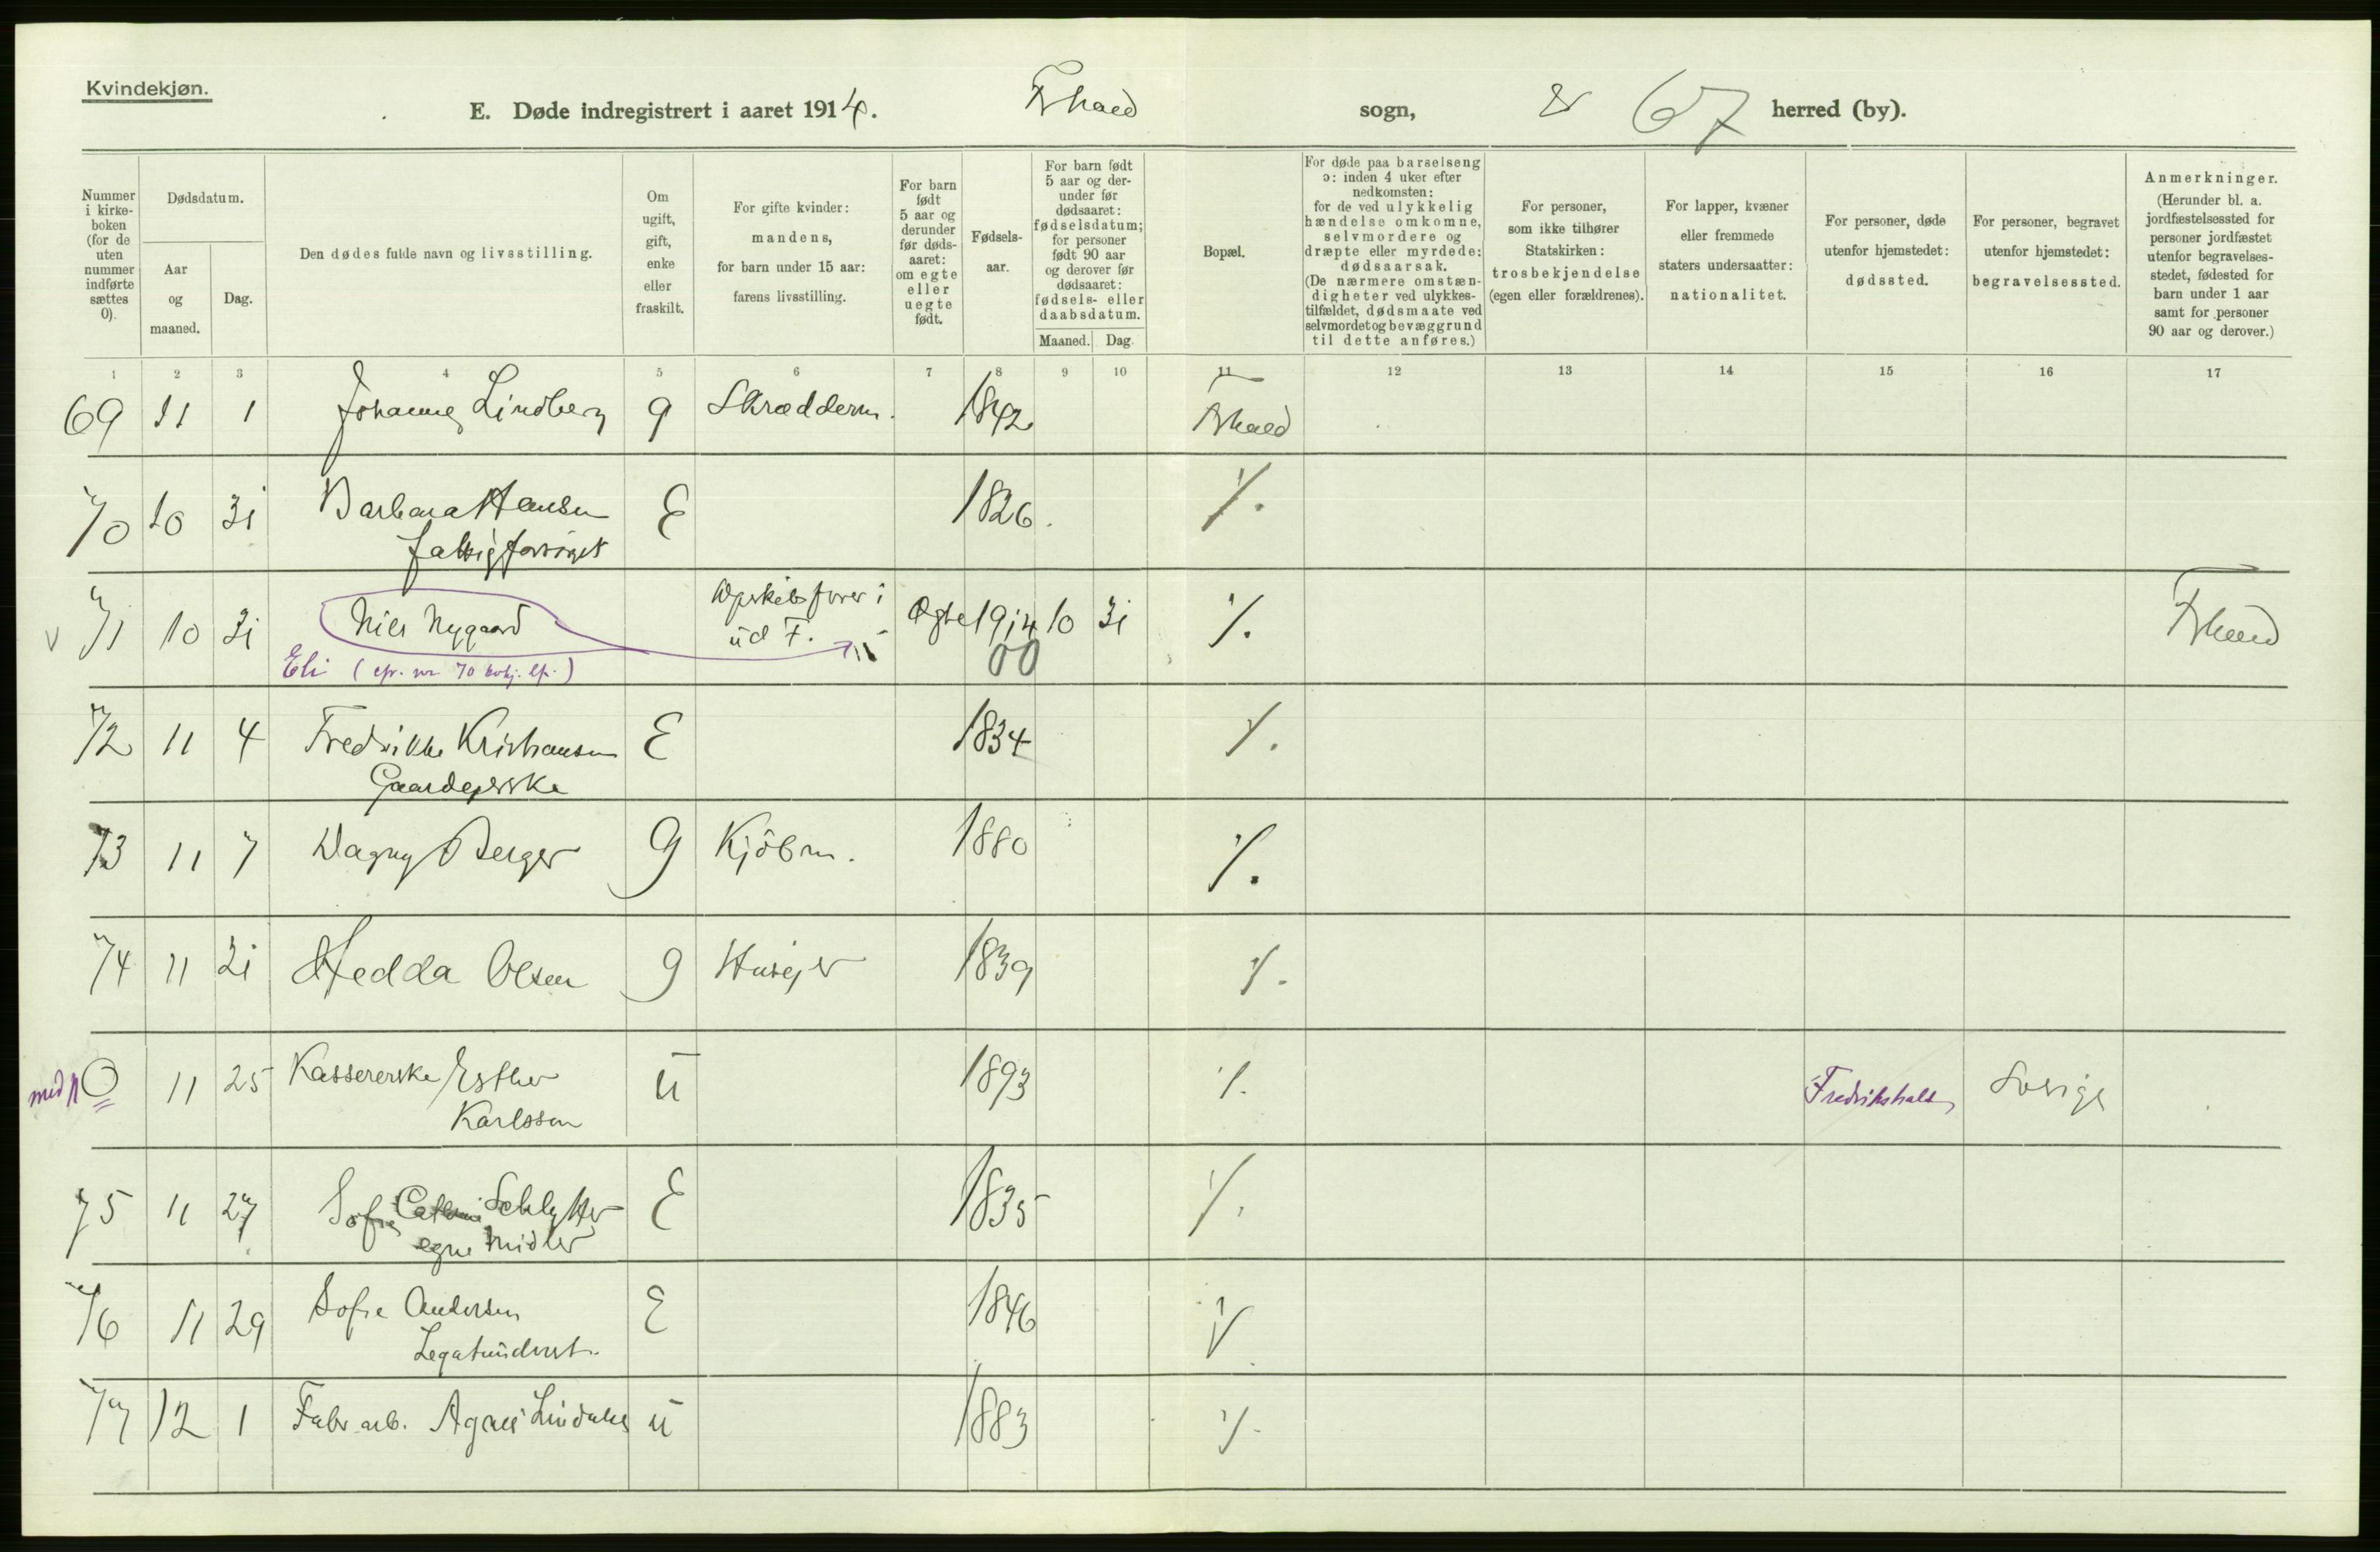 Kvindekjøn.
E. Døde indregistrert i aaret 1914. Frhald sogn, 67 herred (by).
Nummer i kirke-boken (for de uten nummer indførte sættes 0).
Dødsdatum.
Aar og maaned.
Dag.
Den dødes fulde navn og livsstilling.
Om ugift, gift, enke eller fraskilt.
For gifte kvinder: mandens, for barn under 15 aar: farens livsstilling.
For barn født 5 aar og derunder før døds-aaret: om egte eller uegte født.
Fødsels-aar.
For barn født 5 aar og der-under før dødsaaret: fødselsdatum; for personer født 90 aar og derover før dødsaaret: fødsels- eller daabsdatum.
Maaned. Dag.
Bopæl.
For døde paa barselseng ɔ: inden 4 uker efter nedkomsten: for de ved ulykkelig hændelse omkomne, selvmordere og dræpte eller myrdede: dødsaarsak. (De nærmere omstæn-digheter ved ulykkes-tilfældet, dødsmaate ved selvmordet og bevæggrund til dette anføres.)
For personer, som ikke tilhører Statskirken: trosbekjendelse (egen eller forældrenes).
For lapper, kvæner eller fremmede staters undersaatter: nationalitet.
For personer, døde utenfor hjemstedet: dødssted.
For personer, begravet utenfor hjemstedet: begravelsessted.
Anmerkninger. (Herunder bl. a. jordfæstelsessted for personer jordfæstet utenfor begravelses-stedet, fødested for barn under 1 aar samt for personer 90 aar og derover.)
1 2 3 4 5 6 7 8 9 10 11 12 13 14 15 16 17
69 11 1 Johanne Lindberg g Skrædderm. 1842 Frhald
70 10 31 Barbara Hansen E 1826. ⁒
fattigforsörget
71 10 31 Nils Nygaard ud F. Ægte 1914 10 31 ⁒ Frhald
00
Eli (cfr. nr 70 )
72 11 4 Fredrikke Kristiansen E 1834 ⁒
Gaardejerske
73 11 7 Dagny Berger g Kjöbm. 1880 ⁒
74 11 21 Hedda Olsen g Husejer 1839 ⁒
med n 0 11 25 Kassererske Esther u 1893 ⁒ Fredrikshald Sverige
Karlsson
75 11 27 Sofie Schlytter E 1835 ⁒
egne midler
76 11 29 Sofie Andersen E 1846 ⁒
Legatunderst.
77 12 1 Fabr.arb. Agnes u 1883 ⁒